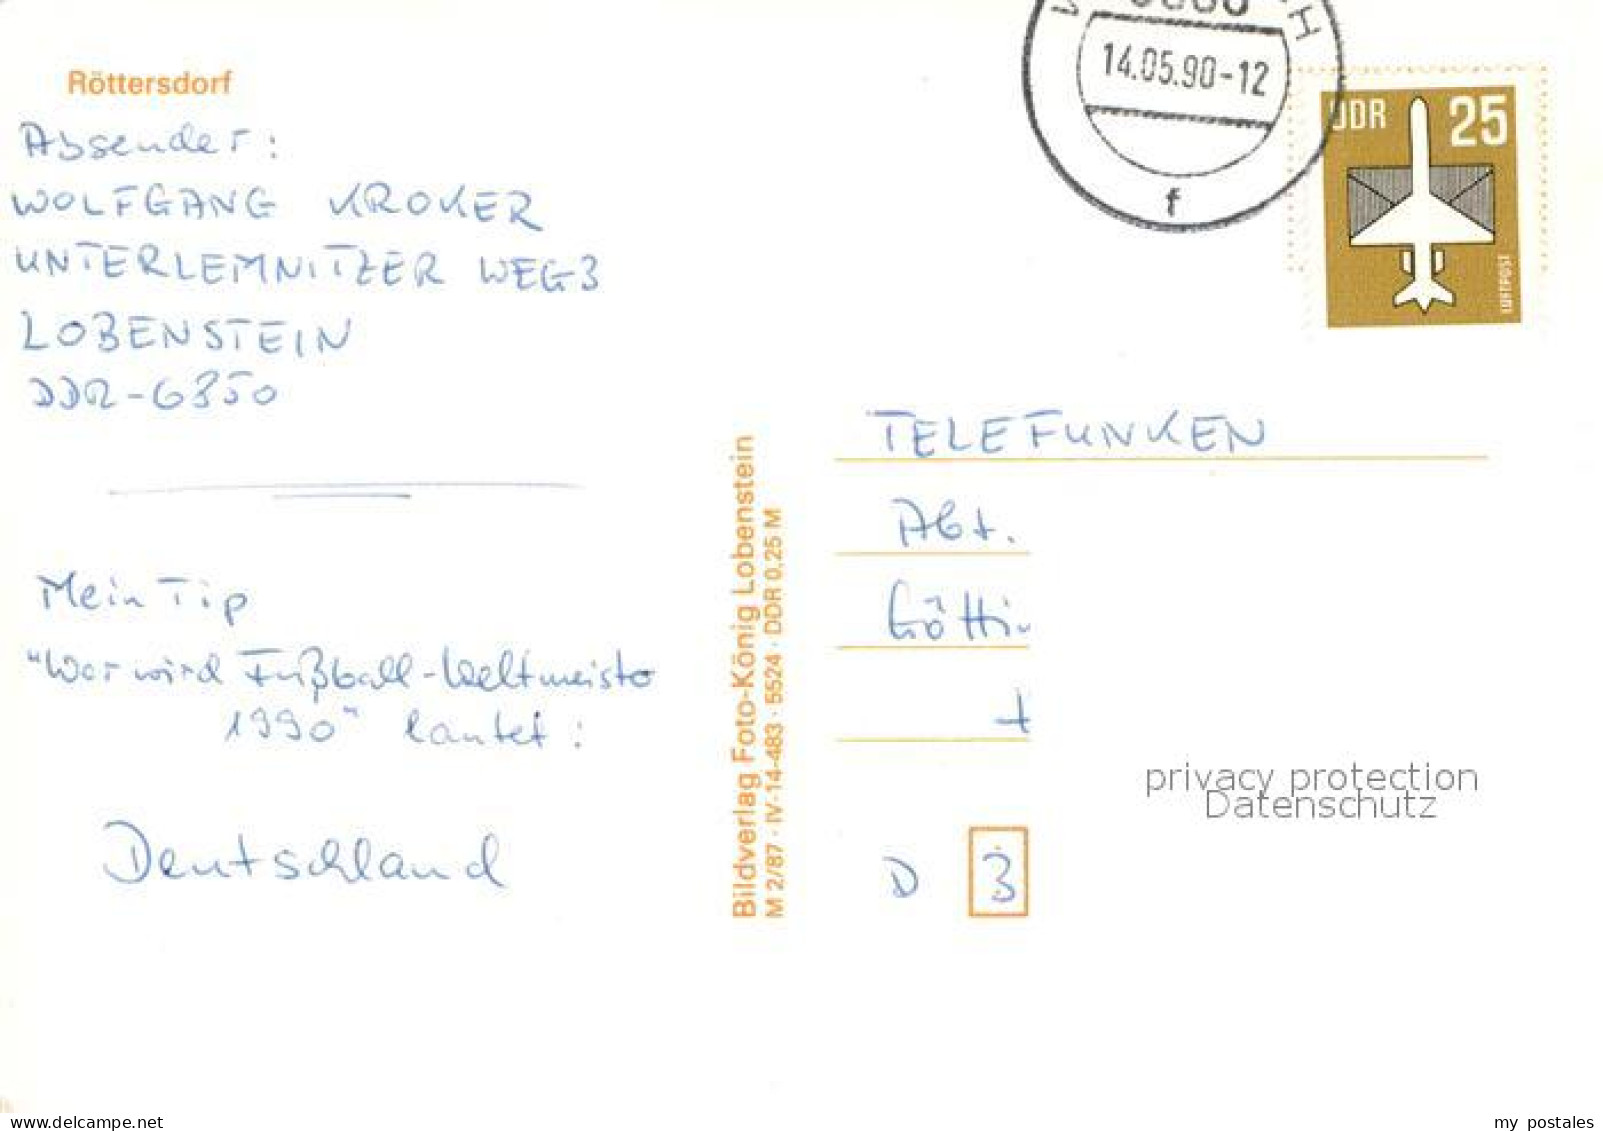 Röttersdorf
Absender:
WOLFGANG KROKER
UNTERLEMNITZER WEG 3
LOBENSTEIN
DDR-6850
Mein Tip
"Wer wird Fußball-Weltmeister
1990" lautet:
Deutschland
Bildverlag Foto-König Lobenstein
M 2/87 · IV-14-483 · 5524 · DDR 0,25 M
14.05.90-12
f
DDR 25
LUFTPOST
TELEFUNKEN
Abt.
Götti
t
D 3
privacy protection
Datenschutz
my postales